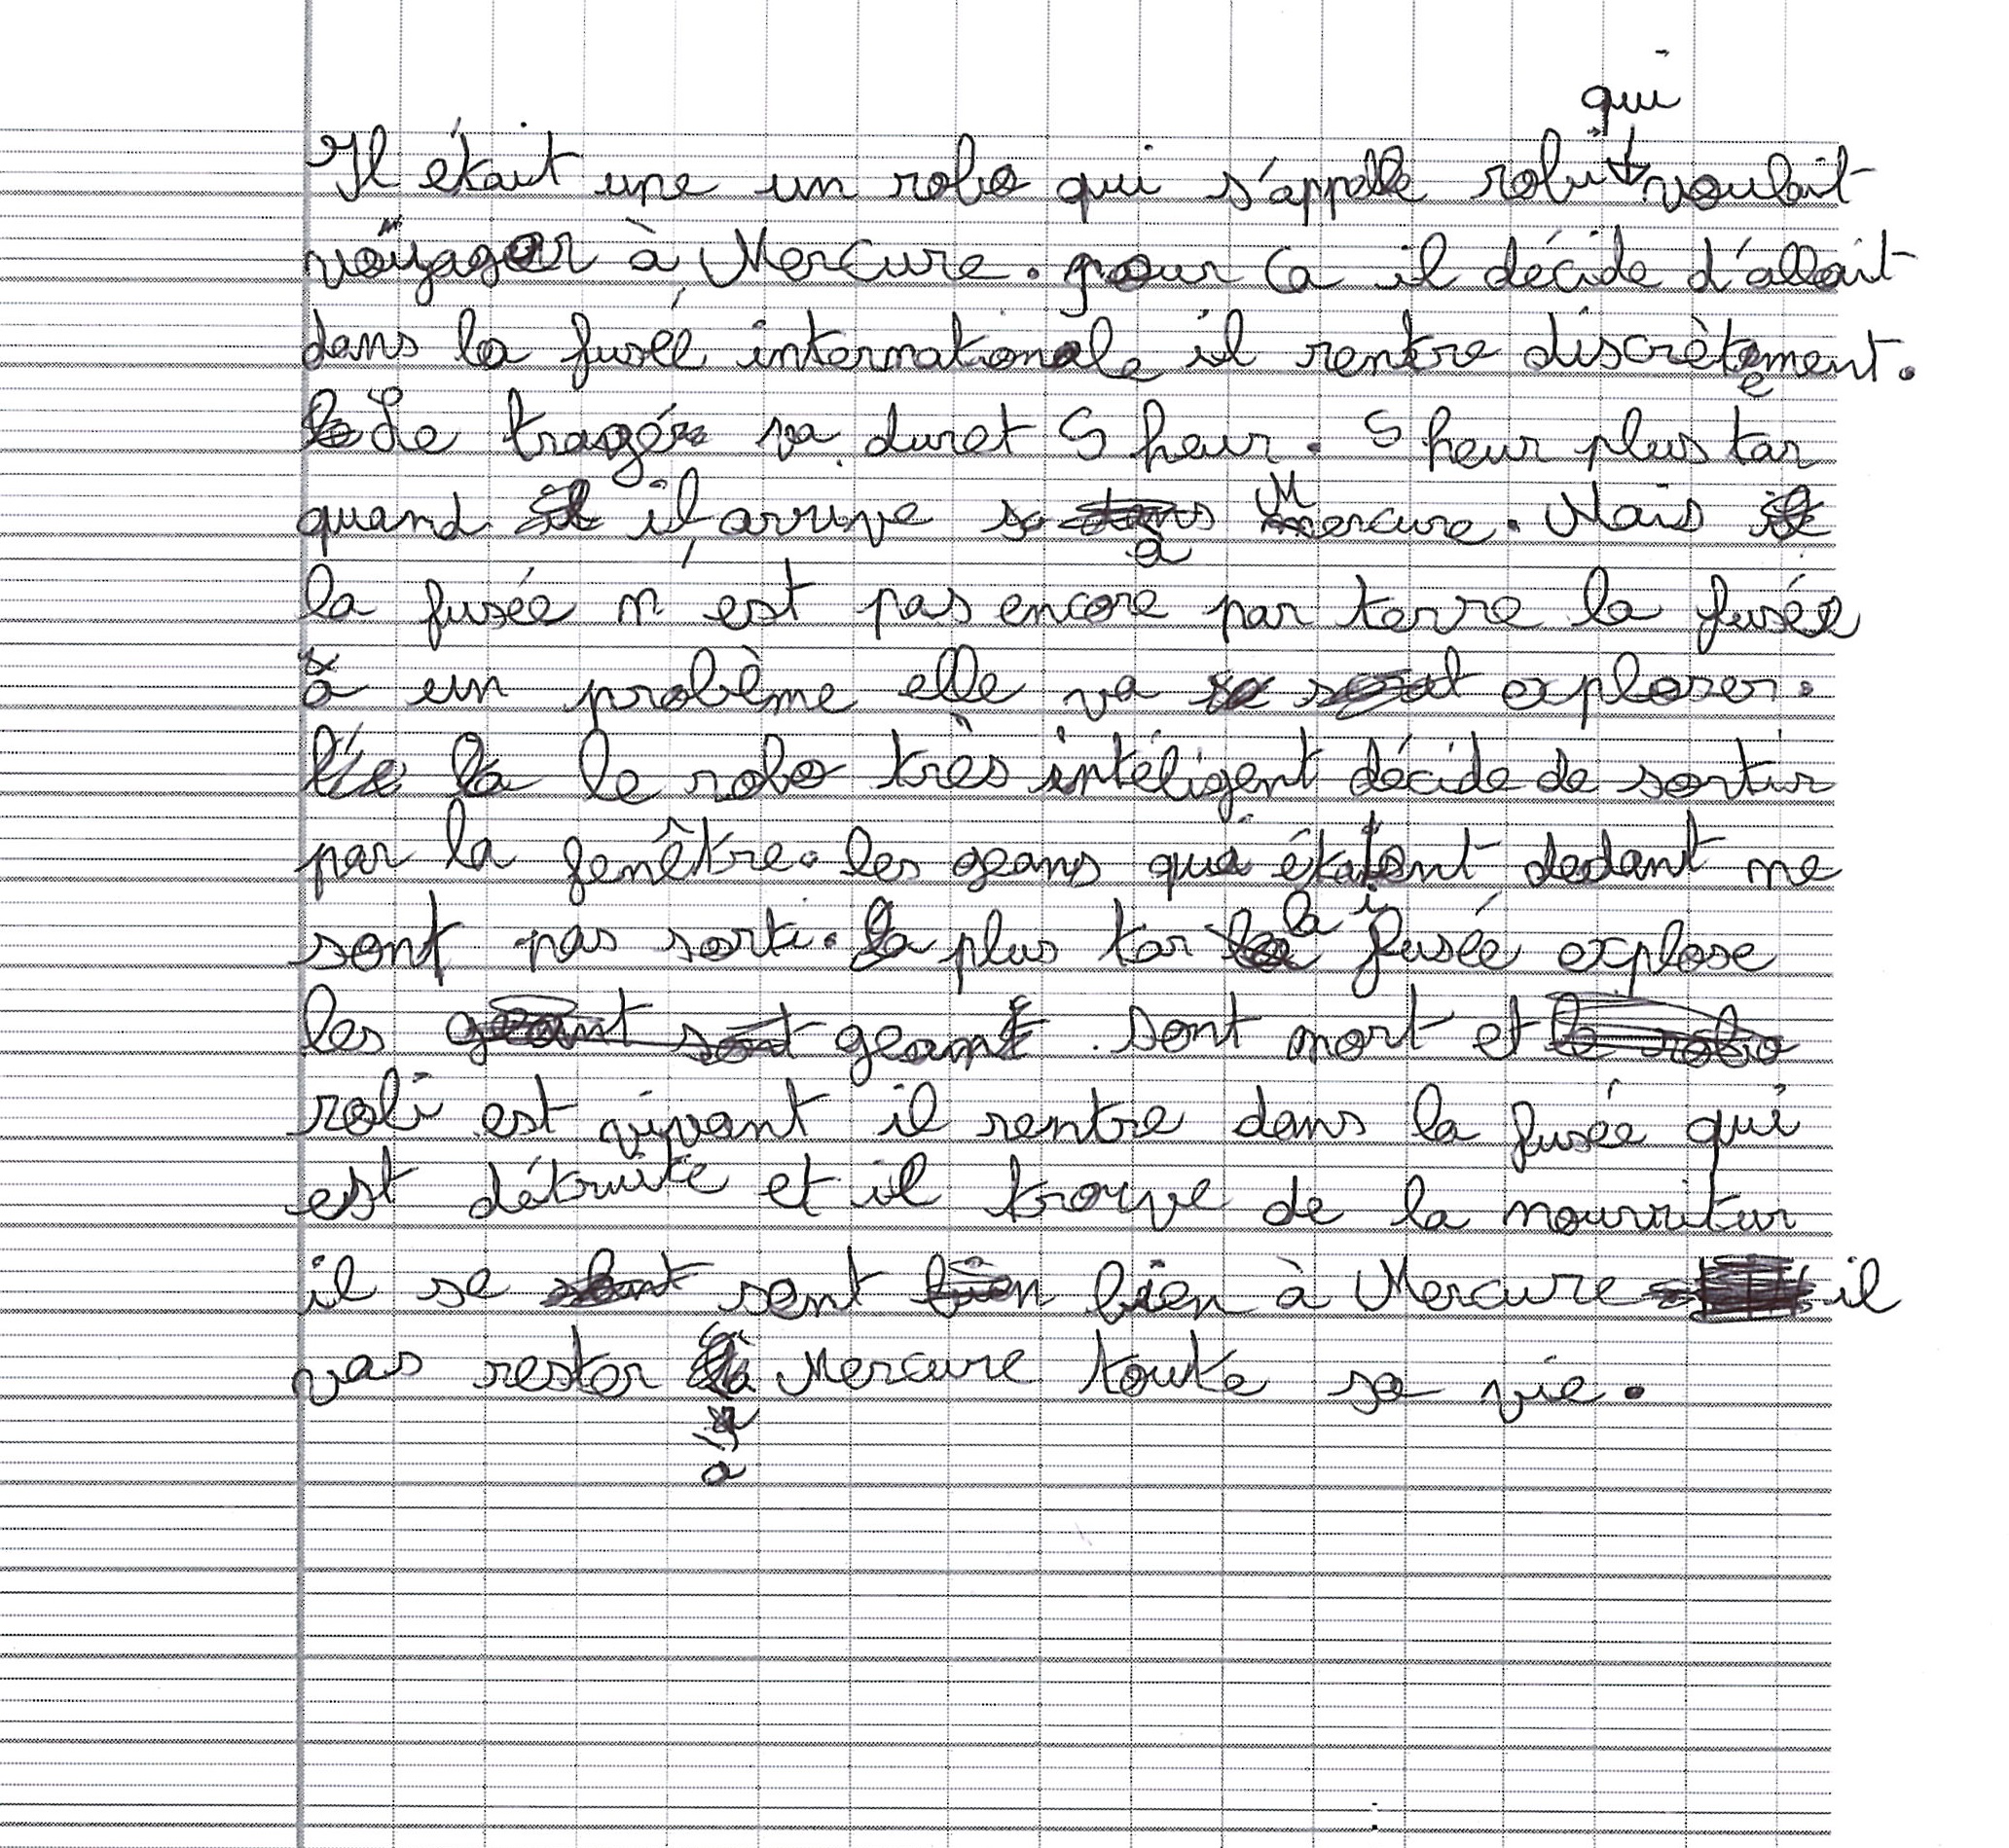 qui
Il était une un robo qui s'appelle robi voulait
voyager à Mercure. pour ca il décide d'allait
dans la fusée internationale il rentre discrètement.
Le tragér va duret 5 heur. 5 heur plus tar
quand il arrive à Mercure. Mais
la fusée n'est pas encore par terre la fusée
a un problème elle va exploser.
le robo très intéligent décide de sortir
par la fenêtre. les geans qui étaient dedant ne
sont pas sorti. plus tar la fusée explose
les geant sont mort et
robi est vivant il rentre dans la fusée qui
est détruite et il trouve de la nourritur
il se sent bien à Mercure il
vas rester à Mercure toute sa vie.